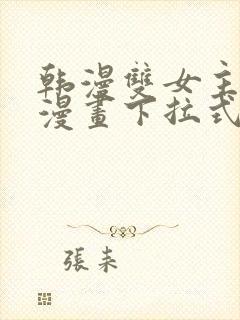 韩漫雙女主
漫畫下拉式
張耒